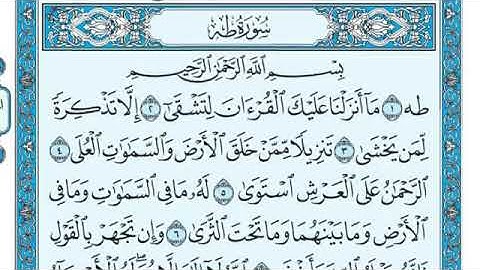 سُورَةُ طه
بِسْمِ اللَّهِ الرَّحْمَٰنِ الرَّحِيمِ
طه ١ مَآ أَنزَلْنَا عَلَيْكَ الْقُرْءَانَ لِتَشْقَىٰٓ ٢ إِلَّا تَذْكِرَةً
لِّمَن يَخْشَىٰ ٣ تَنزِيلًا مِّمَّنْ خَلَقَ الْأَرْضَ وَالسَّمَٰوَٰتِ الْعُلَى ٤
الرَّحْمَٰنُ عَلَى الْعَرْشِ اسْتَوَىٰ ٥ لَهُۥ مَا فِي السَّمَٰوَٰتِ وَمَا فِي
الْأَرْضِ وَمَا بَيْنَهُمَا وَمَا تَحْتَ الثَّرَىٰ ٦ وَإِن تَجْهَرْ بِالْقَوْلِ